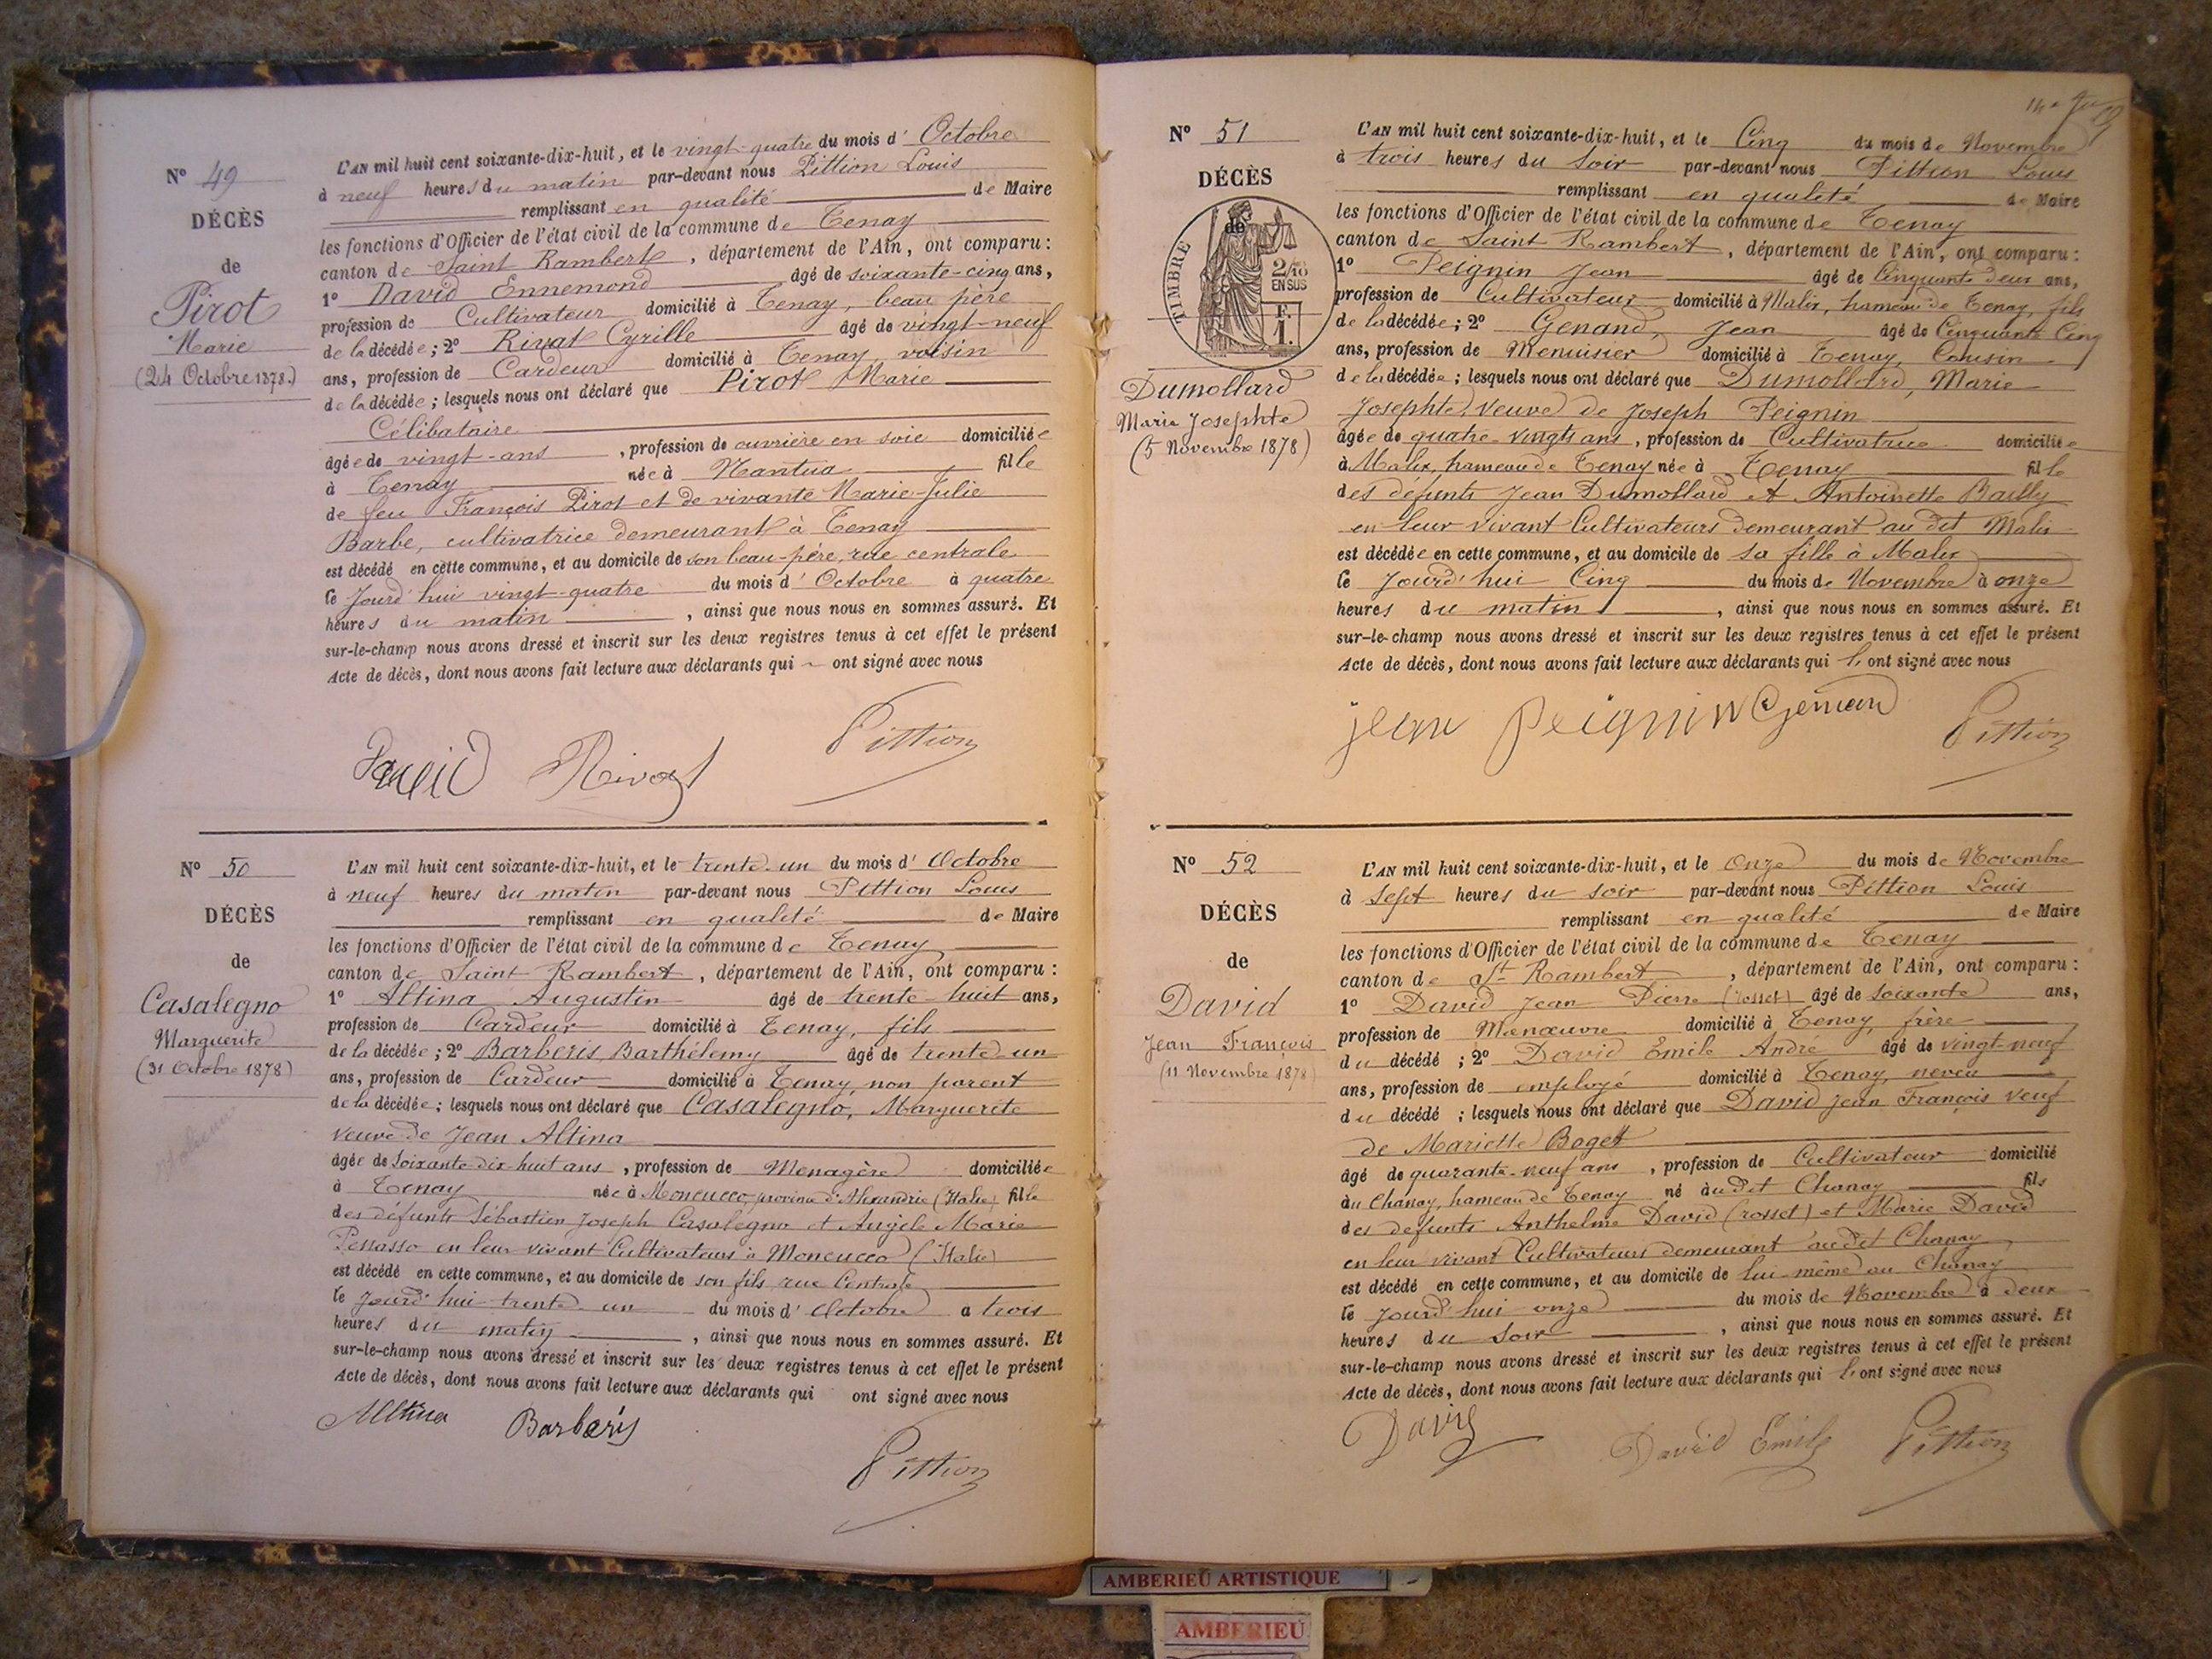 N° 49
DÉCÈS
de
Pirot
Marie
(24 Octobre 1878.)
L'AN mil huit cent soixante-dix-huit, et le vingt-quatre du mois d' Octobre
à neuf heures du matin par-devant nous Pittion Louis
remplissant en qualité de Maire
les fonctions d'Officier de l'état civil de la commune de Tenay
canton de Saint Rambert, département de l'Ain, ont comparu :
1° David Ennemond âgé de soixante-cinq ans,
profession de Cultivateur domicilié à Tenay, beau père
de la décédée ; 2° Rivat Cyrille âgé de vingt-neuf
ans, profession de Cardeur domicilié à Tenay, voisin
de la décédée ; lesquels nous ont déclaré que Pirot Marie
Célibataire
âgée de vingt-ans, profession de ouvrière en soie domiciliée
à Tenay née à Nantua fille
de feu François Pirot et de vivante Marie-Julie
Barbe, cultivatrice demeurant à Tenay
est décédé en cette commune, et au domicile de son beau-père, rue centrale
le jourd'hui vingt-quatre du mois d' Octobre à quatre
heures du matin, ainsi que nous nous en sommes assuré. Et
sur-le-champ nous avons dressé et inscrit sur les deux registres tenus à cet effet le présent
Acte de décès, dont nous avons fait lecture aux déclarants qui ont signé avec nous
David Rivat Pittion
N° 50
DÉCÈS
de
Casalegno
Marguerite
(31 Octobre 1878)
L'AN mil huit cent soixante-dix-huit, et le trente-un du mois d' Octobre
à neuf heures du matin par-devant nous Pittion Louis
remplissant en qualité de Maire
les fonctions d'Officier de l'état civil de la commune de Tenay
canton de Saint Rambert, département de l'Ain, ont comparu :
1° Altina Augustin âgé de trente-huit ans,
profession de Cardeur domicilié à Tenay, fils
de la décédée ; 2° Barberis Barthélemy âgé de trente-un
ans, profession de Cardeur domicilié à Tenay, non parent
de la décédée ; lesquels nous ont déclaré que Casalegno, Marguerite
veuve de Jean Altina
âgée de soixante-dix-huit ans, profession de Menagère domiciliée
à Tenay née à Moncucco, province d'Alexandrie (Italie) fille
des défunts Sébastien Joseph Casalegno et Angèle Marie
Pessasso en leur vivant Cultivateurs à Moncucco (Italie)
est décédé en cette commune, et au domicile de son fils rue Centrale
le jourd'hui trente-un du mois d' Octobre à trois
heures du matin, ainsi que nous nous en sommes assuré. Et
sur-le-champ nous avons dressé et inscrit sur les deux registres tenus à cet effet le présent
Acte de décès, dont nous avons fait lecture aux déclarants qui ont signé avec nous
Altina Barberis
Pittion
N° 51
DÉCÈS
de
TIMBRE
2/10
EN SUS
F.
1.
Dumollard
Marie Josephte
(5 Novembre 1878)
L'AN mil huit cent soixante-dix-huit, et le Cinq du mois de Novembre
à trois heures du soir par-devant nous Pittion Louis
remplissant en qualité de Maire
les fonctions d'Officier de l'état civil de la commune de Tenay
canton de Saint Rambert, département de l'Ain, ont comparu :
1° Peignin Jean âgé de Cinquante deux ans,
profession de Cultivateur domicilié à Malix, hameau de Tenay, fils
de la décédée ; 2° Genand, Jean âgé de Cinquante Cinq
ans, profession de Menuisier domicilié à Tenay, Cousin
de la décédée ; lesquels nous ont déclaré que Dumollard, Marie
Josephte, veuve de Joseph Peignin
âgée de quatre-vingts ans, profession de Cultivatrice domiciliée
à Malix, hameau de Tenay née à Tenay fille
des défunts Jean Dumollard et Antoinette Bailly
en leur vivant Cultivateurs demeurant au dit Malix
est décédée en cette commune, et au domicile de sa fille à Malix
le jourd'hui Cinq du mois de Novembre à onze
heures du matin, ainsi que nous nous en sommes assuré. Et
sur-le-champ nous avons dressé et inscrit sur les deux registres tenus à cet effet le présent
Acte de décès, dont nous avons fait lecture aux déclarants qui ont signé avec nous
jean peignin Genand Pittion
N° 52
DÉCÈS
de
David
Jean François
(11 Novembre 1878)
L'AN mil huit cent soixante-dix-huit, et le onze du mois de Novembre
à sept heures du soir par-devant nous Pittion Louis
remplissant en qualité de Maire
les fonctions d'Officier de l'état civil de la commune de Tenay
canton de St Rambert, département de l'Ain, ont comparu :
1° David Jean Pierre (rosset) âgé de soixante ans,
profession de Manœuvre domicilié à Tenay, frère
du décédé ; 2° David Emile André âgé de vingt-neuf
ans, profession de employé domicilié à Tenay, neveu
du décédé ; lesquels nous ont déclaré que David Jean François veuf
de Mariette Boget
âgé de quarante-neuf ans, profession de Cultivateur domicilié
au Chanay, hameau de Tenay né au dit Chanay fils
des défunts Anthelme David (rosset) et Marie David
en leur vivant Cultivateurs demeurant au dit Chanay
est décédé en cette commune, et au domicile de lui-même au Chanay
le jourd'hui onze du mois de Novembre à deux
heures du soir, ainsi que nous nous en sommes assuré. Et
sur-le-champ nous avons dressé et inscrit sur les deux registres tenus à cet effet le présent
Acte de décès, dont nous avons fait lecture aux déclarants qui ont signé avec nous
David David Emile Pittion
AMBERIEU ARTISTIQUE
AMBERIEU